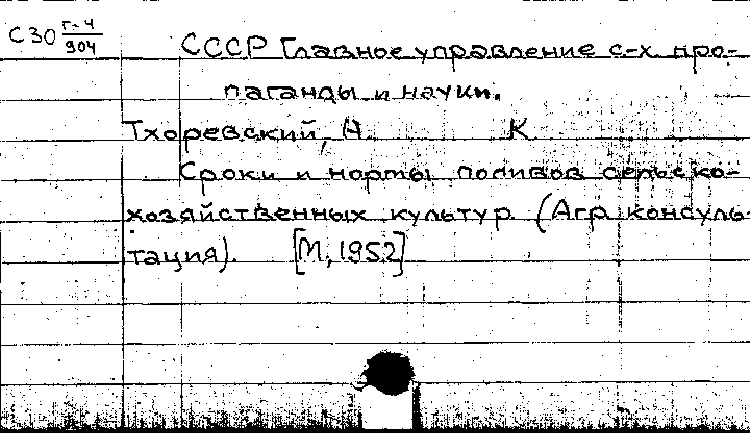 С30 Г-4/904
СССР Главное управление с-х. про-
паганды и науки.
Тхоревский, Н. К
Сроки и нормы поливов сельско-
хозяйственных культур (Агр консуль-
тация). [М, 1952]